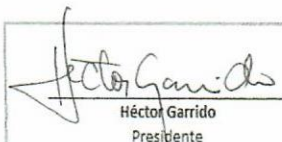 Héctor Garrido
Héctor Garrido
Presidente